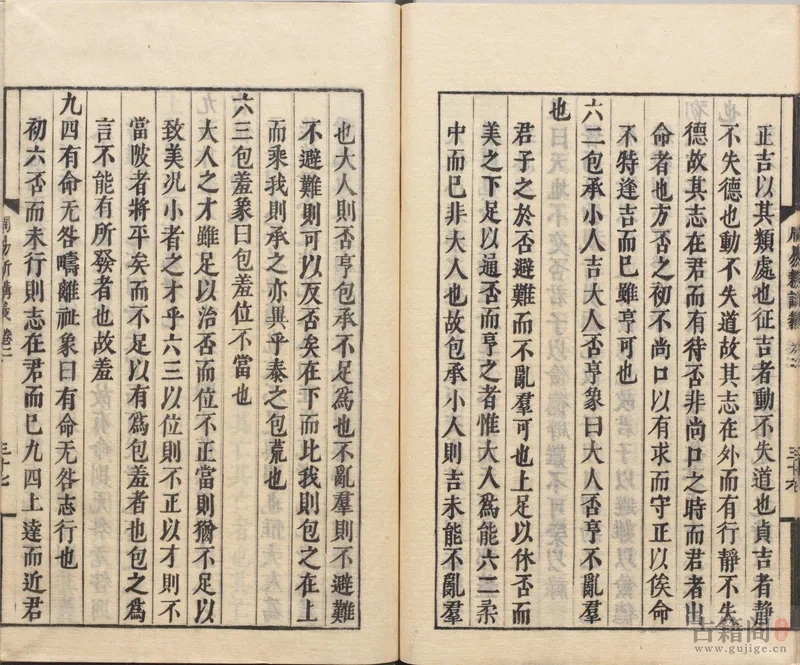 正吉以其類處也征吉者動不失道也貞吉者靜
不失德也動不失道故其志在外而有行靜不失
德故其志在君而有待否非尚口之時而君者出
命者也方否之初不尚口以有求而守正以俟命
不特逢吉而已雖亨可也
六二包承小人吉大人否亨象曰大人否亨不亂羣
也
君子之於否避難而不亂羣可也上足以休否而
美之下足以通否而亨之者惟大人爲能六二柔
中而已非大人也故包承小人則吉未能不亂羣
也大人則否亨包承不足爲也不亂羣則不避難
不避難則可以反否矣在下而比我則包之在上
而乘我則承之亦異乎泰之包荒也
六三包羞象曰包羞位不當也
大人之才雖足以治否而位不正當則猶不足以
致美況小者之才乎六三以位則不正以才則不
當陂者將平矣而不足以有爲包羞者也包之爲
言不能有所發者也故羞
九四有命无咎疇離祉象曰有命无咎志行也
初六否而未行則志在君而已九四上達而近君
周易新講義卷二
三十七
古籍阁
www.gujige.cn